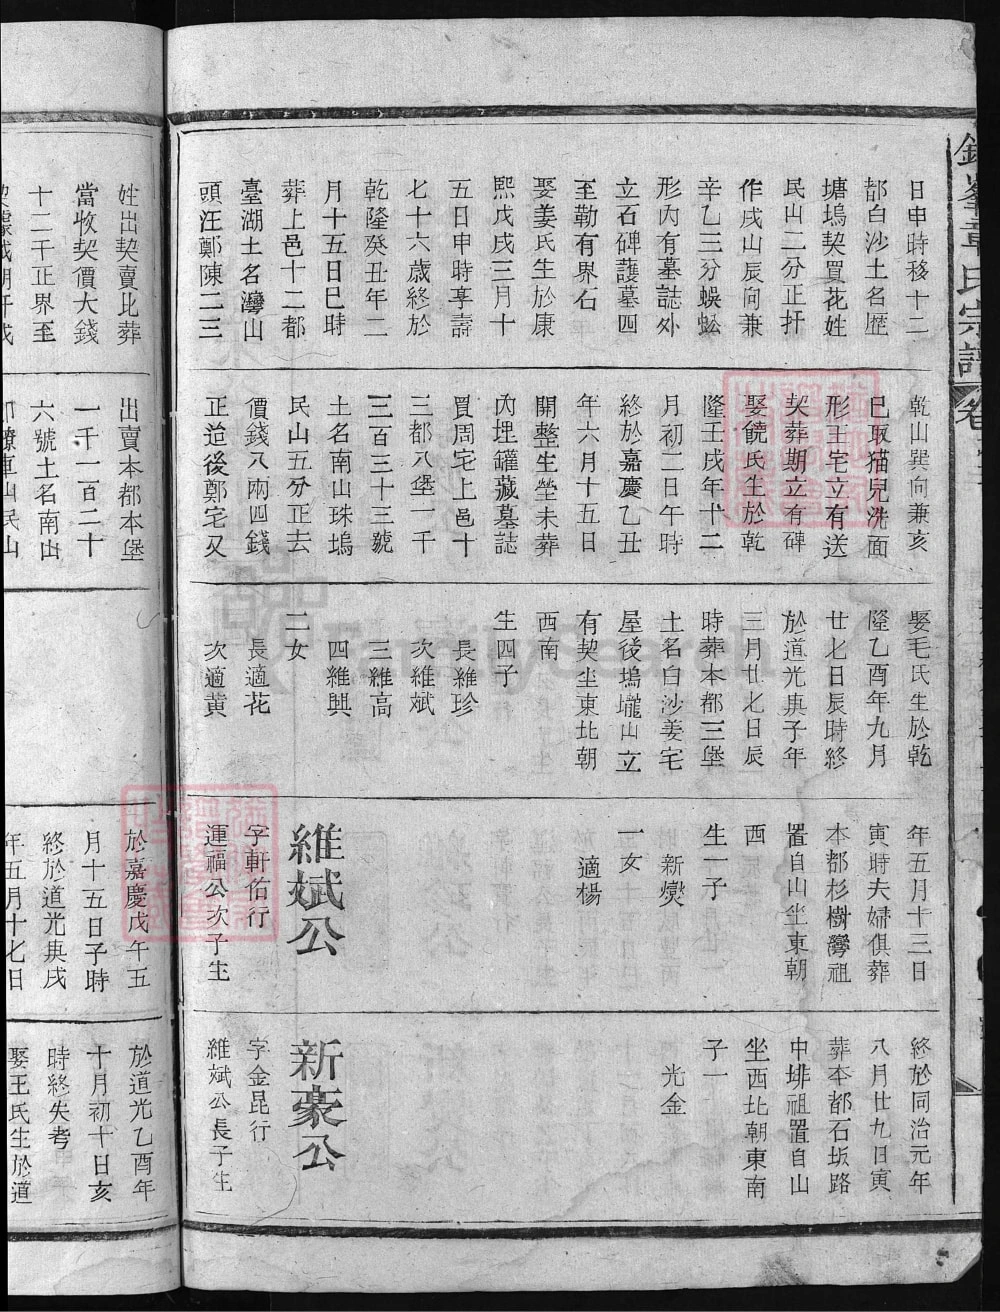 章氏宗譜
日申時移十二
都白沙土名歷
塘塢契買花姓
民山二分正扞
作戌山辰向兼
辛乙三分蜈蚣
形內有墓誌外
立石碑護墓四
至勒有界石
娶姜氏生於康
熙戊戌三月十
五日申時享壽
七十六歲終於
乾隆癸丑年二
月十五日巳時
葬上邑十二都
臺湖土名灣山
頭汪鄭陳二三
乾山巽向兼亥
巳取猫兒洗面
形王宅立有送
契葬期立有碑
娶饒氏生於乾
隆壬戌年十二
月初二日午時
終於嘉慶乙丑
年六月十五日
開整生塋未葬
內埋罐藏墓誌
買周宅上邑十
三都八堡一千
三百三十三號
土名南山珠塢
民山五分正去
價錢八兩四錢
正迨後鄭宅又
娶毛氏生於乾
隆乙酉年九月
廿七日辰時終
於道光庚子年
三月廿七日辰
時葬本都三堡
土名白沙姜宅
屋後塢壠山立
有契坐東北朝
西南
生四子
長維珍
次維斌
三維高
四維興
二女
長適花
次適黃
年五月十三日
寅時夫婦俱葬
本都杉樹灣祖
置自山坐東朝
西
生一子
新爕
一女
適楊
維斌公
字軒佑行
運福公次子生
終於同治元年
八月廿九日寅
葬本都石坂路
中排祖置自山
坐西北朝東南
子一
光金
新豪公
字金昆行
維斌公長子生
姓出契賣比葬
當收契價大錢
十二千正界至
出賣本都本堡
一千一百二十
六號土名南山
於嘉慶戊午五
月十五日子時
終於道光庚戌
年五月十七日
於道光乙酉年
十月初十日亥
時終失考
娶王氏生於道